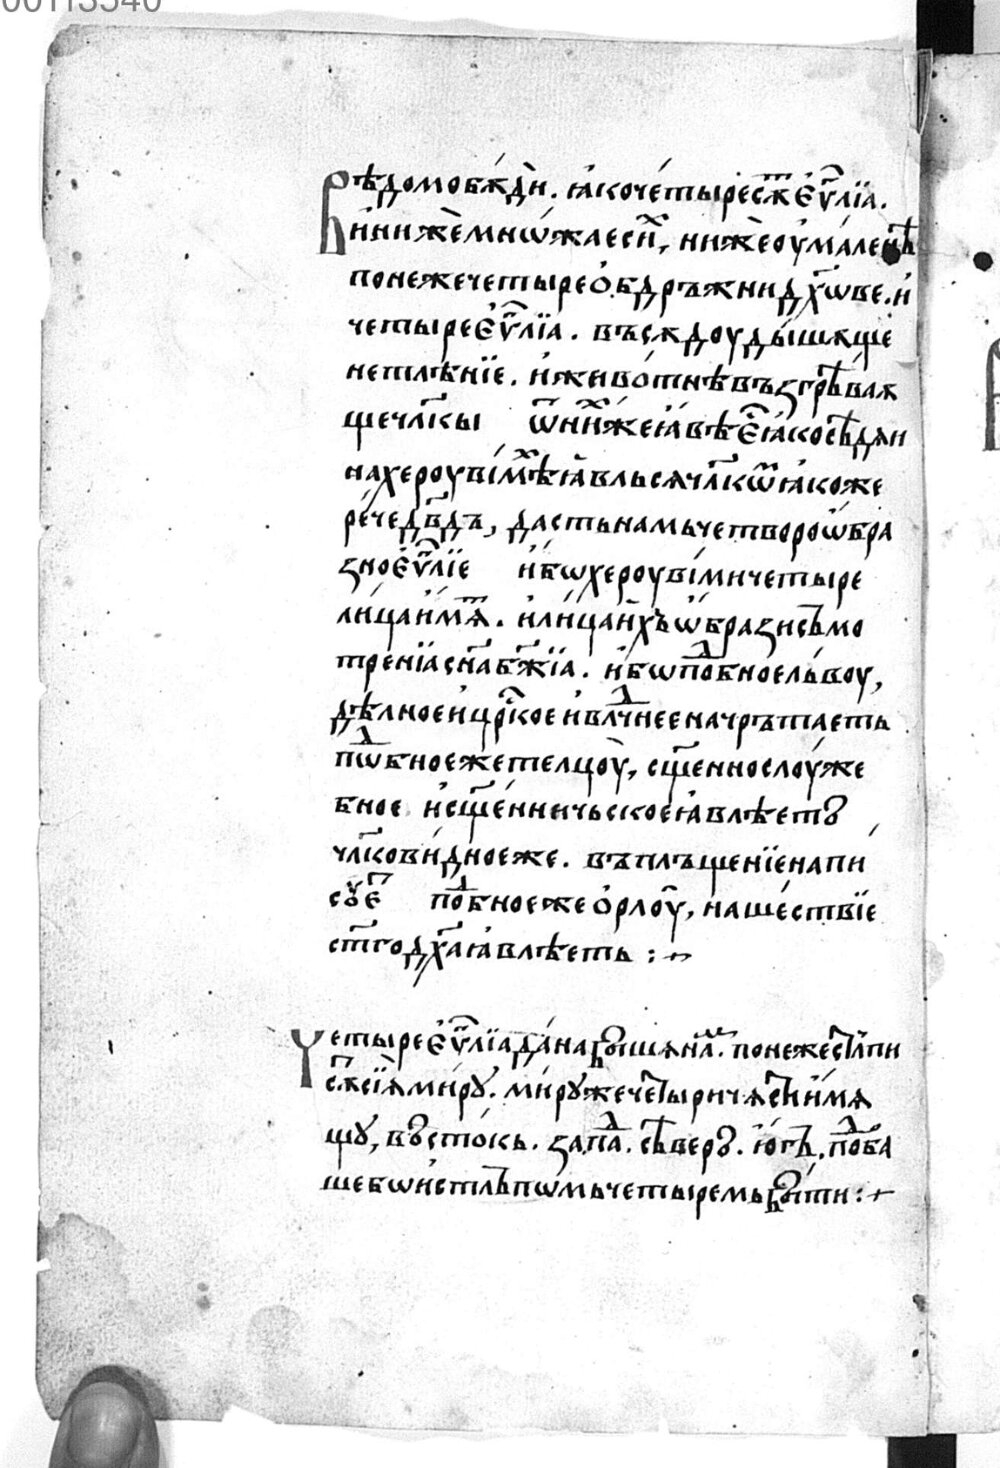 00113540
Вѣдомо бѫди. ꙗко четыре сꙋ҃т еѵⷢ҇лїа.
и ни же мнѡжае сиⷯ, ни же оумаленѣ
понеже четыре ѡбдръжнии дх҃ѡве. и
четыре еѵⷢ҇лїа. въсѫдоу дышѫще
нетлѣнїе. и животнѣ възгрѣваѫ
ще чл҃кы ѿ ниⷯже ꙗвѣ еⷭ҇ ꙗко сѣдяи
на хероувімѣⷯ ꙗвльсѧ чл҃кѡⷨ ꙗкоже
рече дв҃дъ, дасть намь четвороѡбра
зно еѵⷢ҇лїе ибѡ хероувіми четыре
лица имѫⷮ. и лица ихъ ѡбрази съмо
тренїа сн҃а бж҃їа. ибѡ поⷣбное львоу,
дѣлное и црⷭ҇кое и влⷣчнее начрътаеть
пѡⷣбное же телцоу, сщ҃еннослоуже
бное и сщ҃енничьское ꙗвлѣетъ
чл҃ковидное же. въплъщенїе напи
сꙋеⷮ поⷣбное же орлоу, нашествїе
ст҃го дх҃а ꙗвлѣеть :~
Четыре еѵⷢ҇лїа дана быша наⷨ. понеже
миру. миру же четыри части имѧ
щу, въстокь. запаⷣ. сѣверъ. югъ. поⷣба
ше бѡ и стлъпѡмь четыремь быти :~